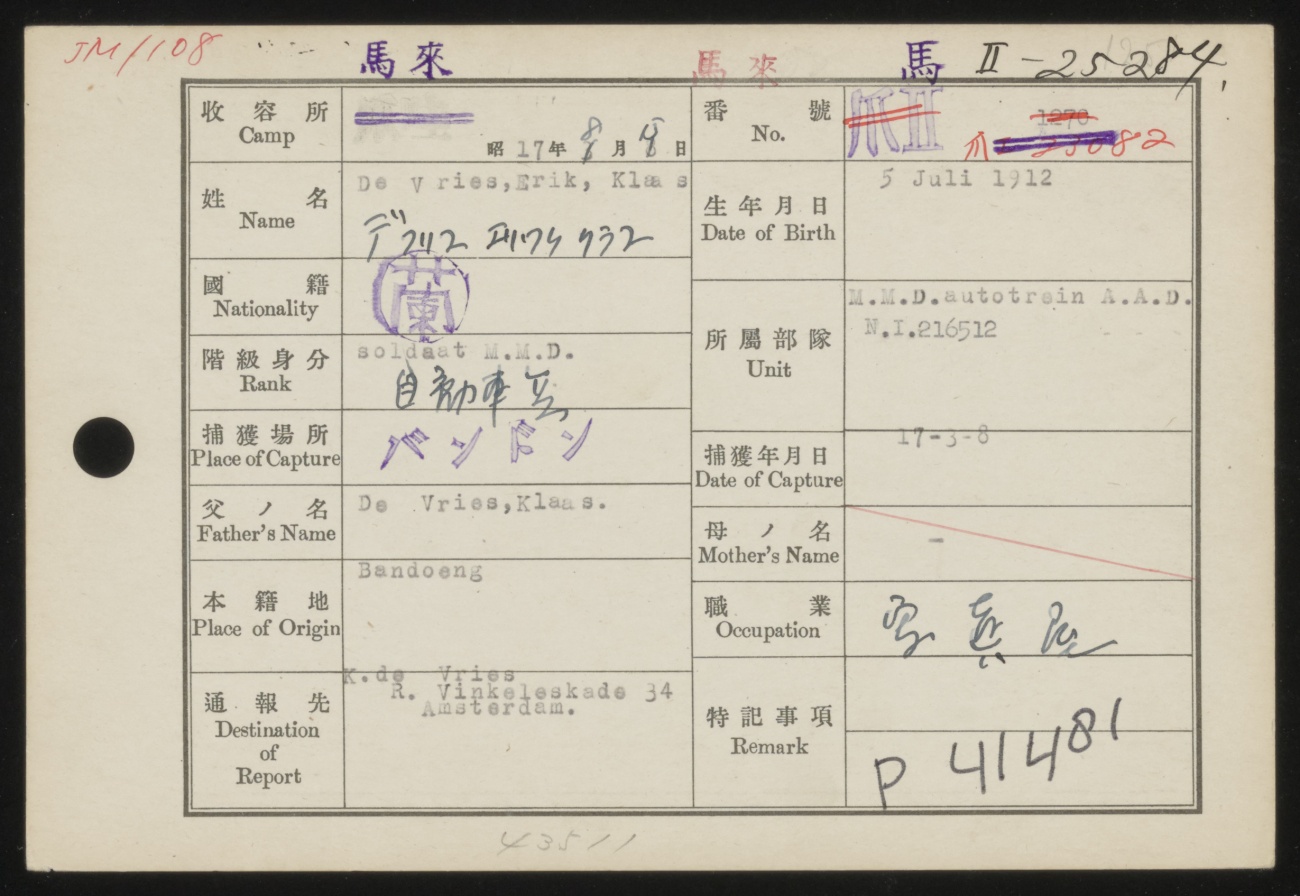 JM/108
馬來
馬來
馬 II-25284.
收容所
Camp
昭17年8月 日
番號
No.
爪II
1270
姓名
Name
De Vries,Erik, Klaas
デフリス エリック クラス
生年月日
Date of Birth
5 Juli 1912
國籍
Nationality
蘭
階級身分
Rank
soldaat M.M.D.
自動車兵
所屬部隊
Unit
M.M.D.autotrein A.A.D.
N.I.216512
捕獲場所
Place of Capture
バンドン
捕獲年月日
Date of Capture
17-3-8
父ノ名
Father's Name
De Vries,Klaas.
母ノ名
Mother's Name
-
本籍地
Place of Origin
Bandoeng
職業
Occupation
寫真屋
通報先
Destination
of
Report
K.de Vries
R. Vinkeleskade 34
Amsterdam.
特記事項
Remark
P 41481
43511